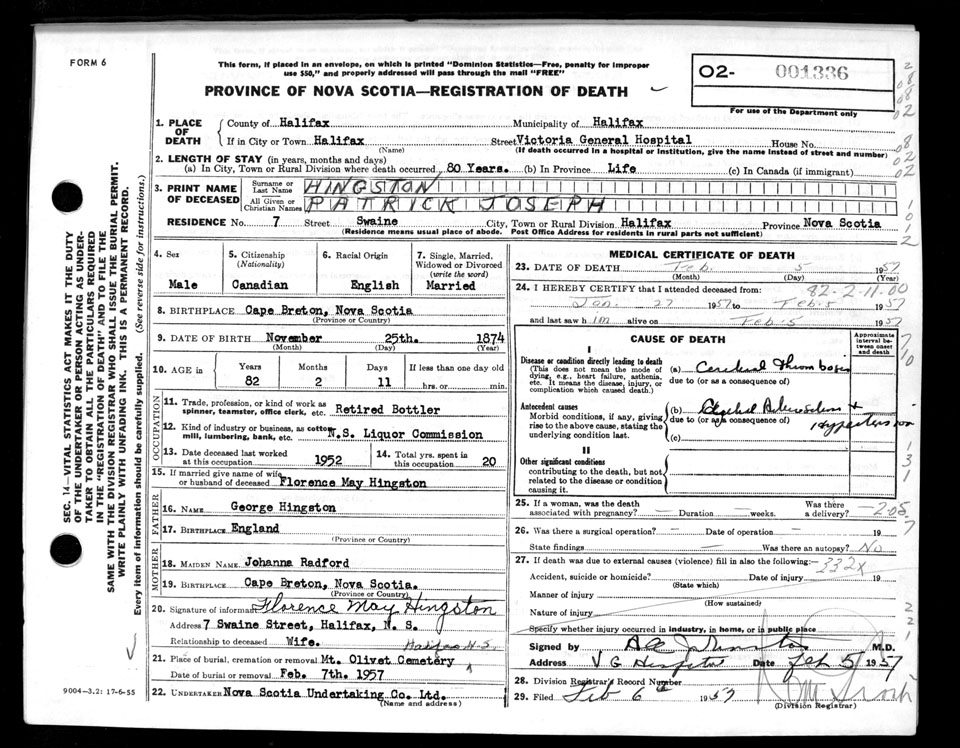 FORM 6
This form, if placed in an envelope, on which is printed "Dominion Statistics—Free, penalty for improper
use $50," and properly addressed will pass through the mail "FREE"
PROVINCE OF NOVA SCOTIA—REGISTRATION OF DEATH
O2- 001336
For use of the Department only
1. PLACE OF DEATH
County of Halifax Municipality of Halifax
If in City or Town Halifax Street Victoria General Hospital House No.
(Name) (If death occurred in a hospital or institution, give the name instead of street and number)
2. LENGTH OF STAY (in years, months and days)
(a) In City, Town or Rural Division where death occurred 80 Years. (b) In Province Life (c) In Canada (if immigrant)
3. PRINT NAME OF DECEASED
Surname or Last Name HINGSTON
All Given or Christian Names PATRICK JOSEPH
RESIDENCE No. 7 Street Swaine City, Town or Rural Division Halifax Province Nova Scotia
(Residence means usual place of abode. Post Office Address for residents in rural parts not sufficient)
4. Sex
Male
5. Citizenship (Nationality)
Canadian
6. Racial Origin
English
7. Single, Married, Widowed or Divorced (write the word)
Married
8. BIRTHPLACE Cape Breton, Nova Scotia
(Province or Country)
9. DATE OF BIRTH November 25th. 1874
(Month) (Day) (Year)
10. AGE in Years Months Days If less than one day old
82 2 11 hrs. or min.
OCCUPATION
11. Trade, profession, or kind of work as
spinner, teamster, office clerk, etc. Retired Bottler
12. Kind of industry or business, as cotton
mill, lumbering, bank, etc. N.S. Liquor Commission
13. Date deceased last worked
at this occupation 1952
14. Total yrs. spent in
this occupation 20
15. If married give name of wife
or husband of deceased Florence May Hingston
FATHER
16. NAME George Hingston
17. BIRTHPLACE England
(Province or Country)
MOTHER
18. MAIDEN NAME Johanna Radford
19. BIRTHPLACE Cape Breton, Nova Scotia.
(Province or Country)
20. Signature of informant Florence May Hingston
Address 7 Swaine Street, Halifax, N. S.
Relationship to deceased Wife.
Halifax N.S.
21. Place of burial, cremation or removal Mt. Olivet Cemetery
Date of burial or removal Feb. 7th. 1957
22. UNDERTAKER Nova Scotia Undertaking Co. Ltd.
(Name and address)
9004-3.2: 17-6-55
MEDICAL CERTIFICATE OF DEATH
23. DATE OF DEATH Feb. 5 1957
(Month) (Day) (Year)
82-2-11-00
24. I HEREBY CERTIFY that I attended deceased from:
Jan. 27 1957 to Feb. 5 1957
and last saw him alive on Feb. 5 1957
CAUSE OF DEATH
Approximate interval between onset and death
I
Disease or condition directly leading to death
(This does not mean the mode of
dying, e.g., heart failure, asthenia,
etc. It means the disease, injury, or
complication which caused death.)
(a) Cerebral Thrombosis
due to (or as a consequence of)
Antecedent causes
Morbid conditions, if any, giving
rise to the above cause, stating the
underlying condition last.
(b) Cerebral Arteriosclerosis +
due to (or as a consequence of) Hypertension
(c)
II
Other significant conditions
contributing to the death, but not
related to the disease or condition
causing it.
25. If a woman, was the death
associated with pregnancy? — Duration — weeks. Was there a delivery? —
26. Was there a surgical operation? — Date of operation —
State findings — Was there an autopsy? No
27. If death was due to external causes (violence) fill in also the following:— 332X
Accident, suicide or homicide? Date of injury 19
(State which)
Manner of injury
(How sustained)
Nature of injury
Specify whether injury occurred in industry, in home, or in public place
Signed by M.D.
Address V G Hospital Date Feb 5/ 1957
28. Division Registrar's Record Number
29. Filed Feb 6 1957
(Division Registrar)
SEC. 14—VITAL STATISTICS ACT MAKES IT THE DUTY
OF THE UNDERTAKER OR PERSON ACTING AS UNDER-
TAKER TO OBTAIN ALL THE PARTICULARS REQUIRED
IN THE "REGISTRATION OF DEATH" AND TO FILE THE
SAME WITH THE DIVISION REGISTRAR WHO SHALL ISSUE THE BURIAL PERMIT.
WRITE PLAINLY WITH UNFADING INK. THIS IS A PERMANENT RECORD.
Every item of information should be carefully supplied. (See reverse side for instructions.)